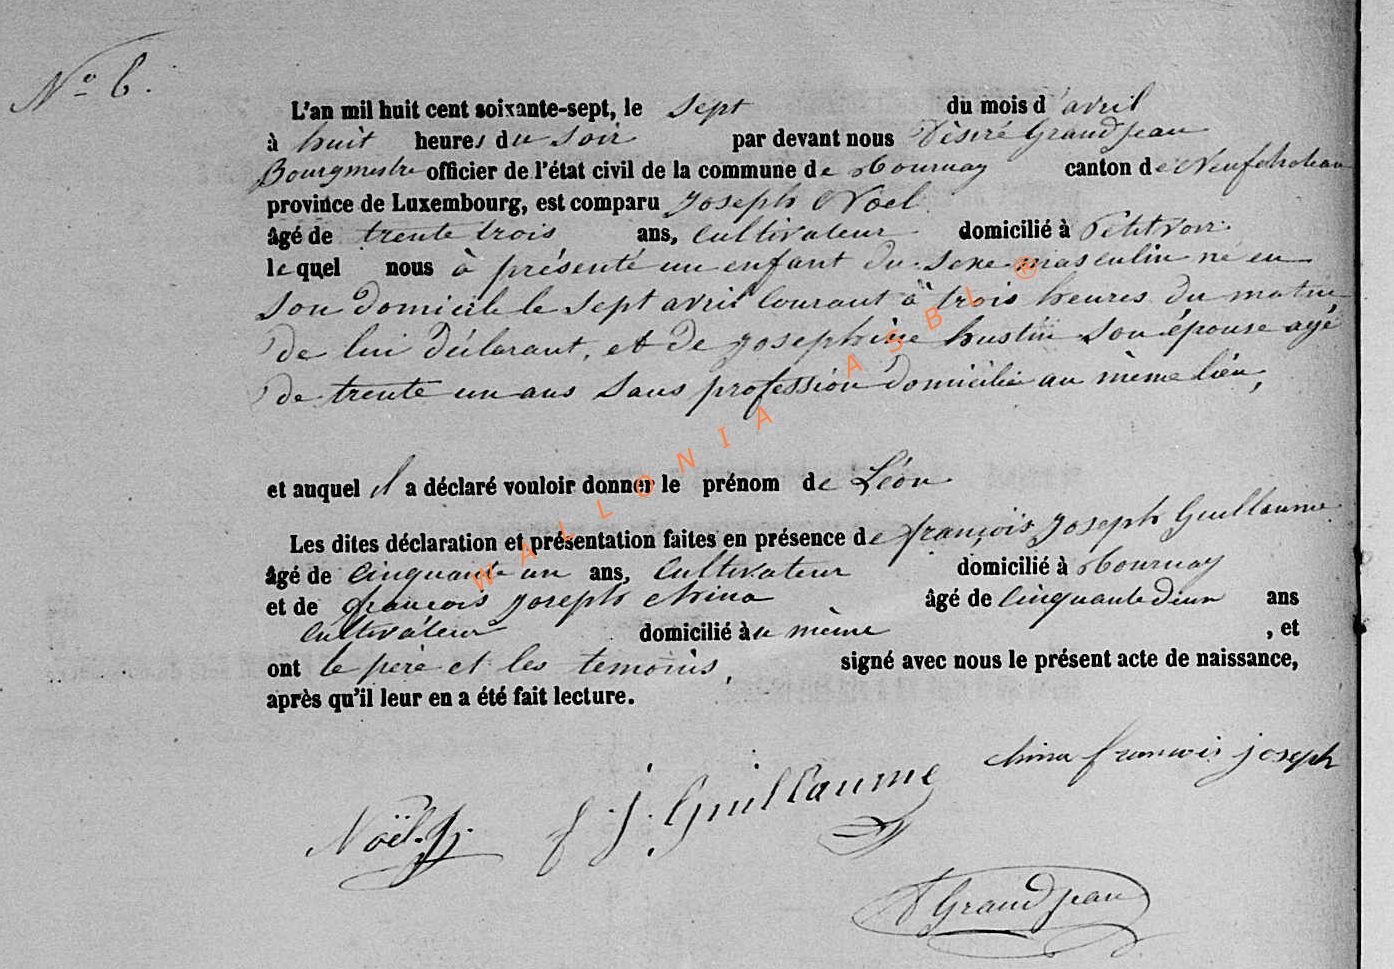 N° 6.
L'an mil huit cent soixante-sept, le sept du mois d'avril
à huit heures du soir par devant nous Désiré Grandjean
Bourgmestre officier de l'état civil de la commune de Tournay canton de Neufchateau
province de Luxembourg, est comparu Joseph Noel
âgé de trente trois ans, cultivateur domicilié à Petitvoir
lequel nous à présenté un enfant du sexe masculin né en
son domicile le sept avril courant à trois heures du matin
de lui déclarant, et de Josephine hustin son épouse agé
de trente un ans sans profession domicilié au même lieu,
et auquel il a déclaré vouloir donner le prénom de Léon
Les dites déclaration et présentation faites en présence de françois Joseph Guillaume
âgé de cinquante un ans, cultivateur domicilié à Tournay
et de françois Joseph china âgé de cinquante deux ans
cultivateur domicilié au même , et
ont le père et les temoins, signé avec nous le présent acte de naissance,
après qu'il leur en a été fait lecture.
china francois joseph
Noël. J. f. j. Guillaume
D Grandjean
WALLONIA ASBL ®